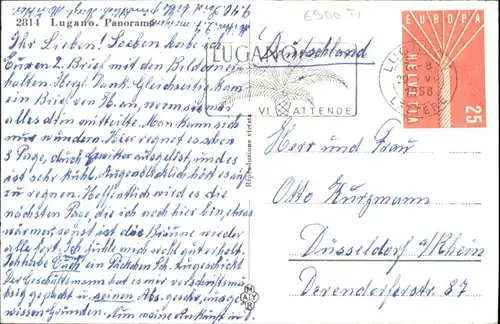 2814 Lugano. Panorama
Ihr Lieben! Soeben habe ich
Euren 2. Brief mit den Bildern er-
halten. Herzl. Dank. Gleichzeitig kam
ein Brief von H. an, worin mir
alles mitteilte. Man kann sich
nur wundern. Hier regnet es schon
3 Tage, durch Gewitter ausgelöst, und es
ist sehr kühl. Ausgerechnet hört es auf
zu regnen. Hoffentlich wird es die
nächsten Tage, die ich noch hier bin, etwas
wärmer, sonst ist die Bräune wieder
alle fort. Ich fühle mich wohl gut erholt.
Ich habe Euch ein Päckchen Sch. zugeschickt
Der Geschäftsmann hat es mir vorschrifts-
mäßig gepackt u. seinen Abs. geschr.
Gründen. Nun meine Ankunft
Riproduzione vietata
6900 TI
LUGANO
VI ATTENDE
Deutschland
LUGANO
1958
EUROPA
HELVETIA
25
Herr und Frau
Otto Kurzmann
Düsseldorf a/Rhein
Derendorferstr. 87
MAYR